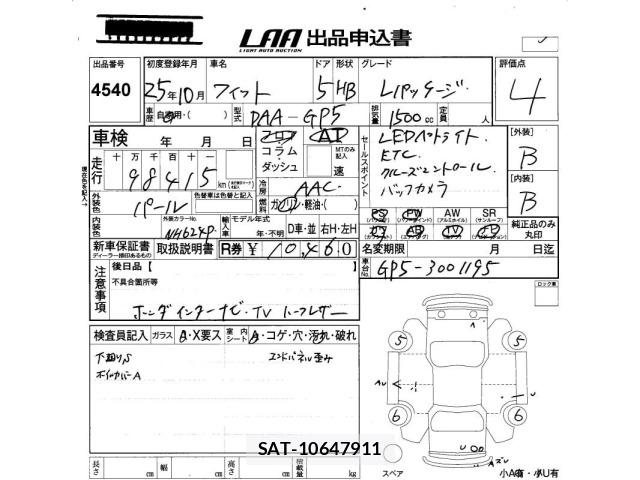 LAA 出品申込書
LIGHT AUTO AUCTION
出品番号 初度登録年月 車名 ドア 形状 グレード 評価点
4540 25年10月 フィット 5 HB Lパッケージ 4
車歴 自家用・( ) 型式 DAA-GP5 排気量 1500cc 定員 人
車検 年 月 日 フロア コラム ダッシュ AT MTのみ記入 速
セールスポイント LEDヘッドライト.
ETC
クルーズコントロール
バックカメラ
[外装] B
[内装] B
走行 十 万 千 百 十 一
98415 km
現在色を記入
外装色 パール 色替車は色替と記入
冷房 AAC
燃料 ガソリン・軽油・( )
PS PW AW SR
TV
純正品のみ丸印
内装色 外装カラーNo. NH624P 輸入車 モデル年式 年・不明 D車・並 右H・左H
新車保証書 取扱説明書 R券 ¥10,460 名変期限 月 日迄
ディーラー捺印あるもの
車台No. GP5-3001195
注意事項 後日品【 】
不具合箇所等
ホンダインターナビ・TV ハーフレザー
ロック車
検査員記入 ガラス A・X要ス 室内 シート A・コゲ・穴・汚れ・破れ
下廻りS エンドパネル歪み
ホイルカバーA
1
5 5
AU
6 6
U
SAT-10647911
長さ cm 幅 cm 高さ cm 積載量 kg スペア 小A有・小U有